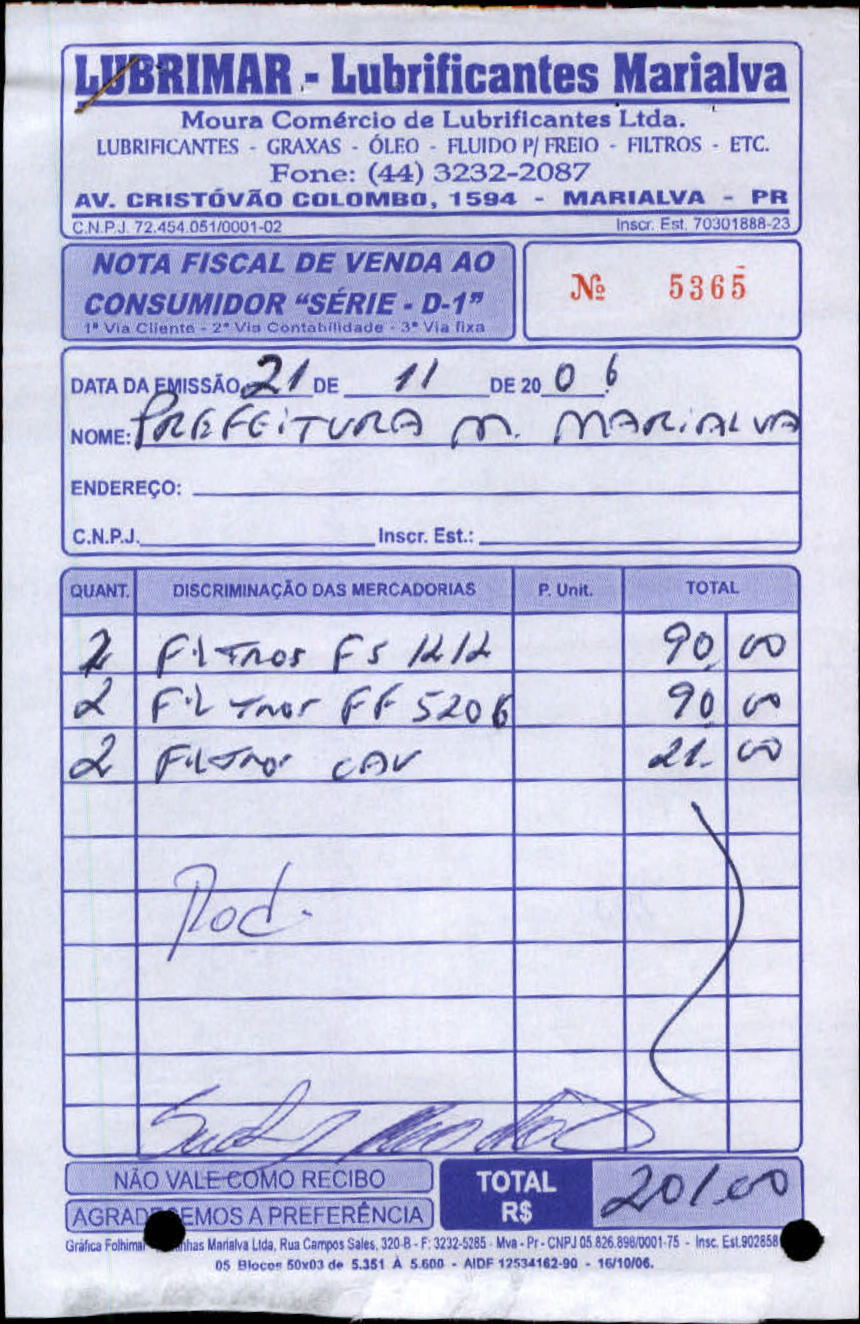 LUBRIMAR - Lubrificantes Marialva
Moura Comércio de Lubrificantes Ltda.
LUBRIFICANTES - GRAXAS - ÓLEO - FLUIDO P/ FREIO - FILTROS - ETC.
Fone: (44) 3232-2087
AV. CRISTÓVÃO COLOMBO, 1594 - MARIALVA - PR
C.N.P.J. 72.454.051/0001-02 Inscr. Est. 70301888-23
NOTA FISCAL DE VENDA AO
CONSUMIDOR "SÉRIE - D-1"
1ª Via Cliente - 2ª Via Contabilidade - 3ª Via fixa
Nº 5365
DATA DA EMISSÃO 21 DE 11 DE 20 06
NOME: PREFEITURA M. MARIALVA
ENDEREÇO:
C.N.P.J. Inscr. Est.:
QUANT. DISCRIMINAÇÃO DAS MERCADORIAS P. Unit. TOTAL
2 FILTROS FS 1212 90,00
2 FILTROS FF 5206 90,00
2 FILTROS CAV 21.00
Rod.
NÃO VALE COMO RECIBO
AGRADECEMOS A PREFERÊNCIA
TOTAL R$ 201.00
Gráfica Marialva Ltda, Rua Campos Sales, 320-B - F: 3232-5285 - Mva - Pr - CNPJ 05.826.898/0001-75 - Insc. Est.902858
05 Blocos 50x03 de 5.351 À 5.600 - AIDF 12534162-90 - 16/10/06.